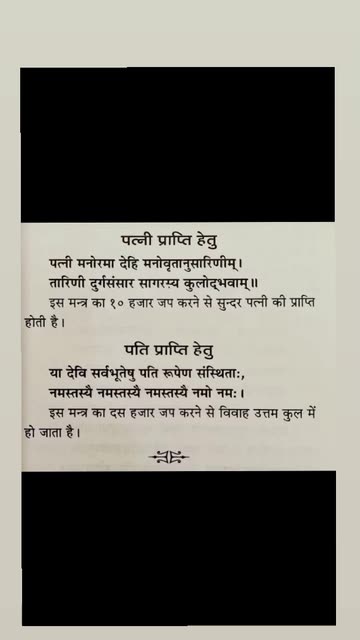 पत्नी प्राप्ति हेतु
पत्नी मनोरमा देहि मनोवृतानुसारिणीम्।
तारिणी दुर्गसंसार सागरस्य कुलोद्भवाम्॥
इस मन्त्र का १० हजार जप करने से सुन्दर पत्नी की प्राप्ति
होती है।
पति प्राप्ति हेतु
या देवि सर्वभूतेषु पति रूपेण संस्थिताः,
नमस्तस्यै नमस्तस्यै नमस्तस्यै नमो नमः।
इस मन्त्र का दस हजार जप करने से विवाह उत्तम कुल में
हो जाता है।